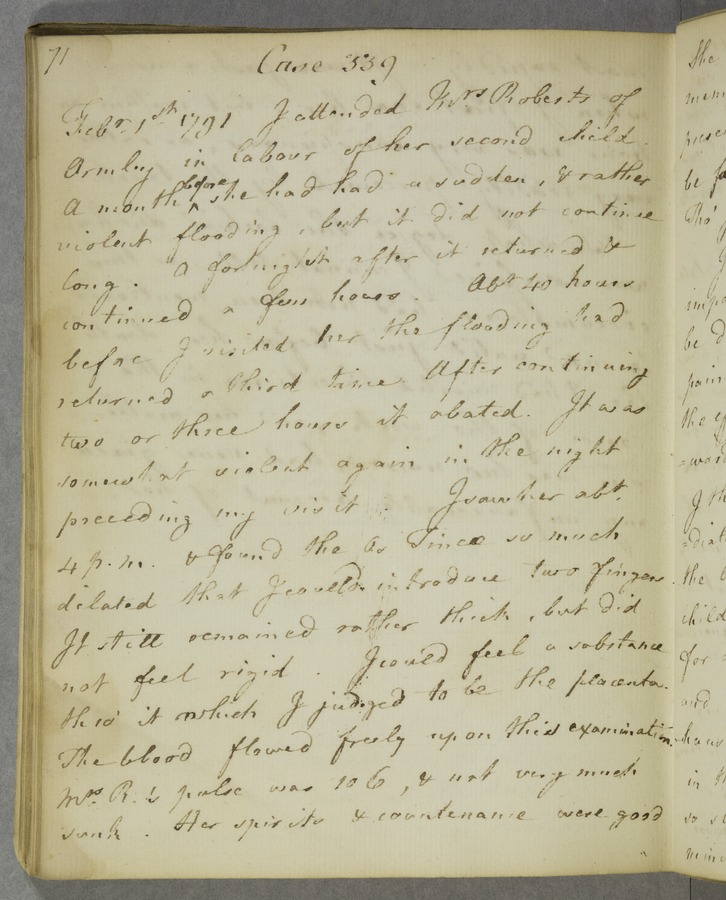 71
Case 339
Febr. 1st 1791 I attended Mrs Roberts of
Armley in labour of her second child.
A month before she had had a sudden, & rather
violent flooding, but it did not continue
long. A fortnight after it returned &
continued a few hours. Abt 40 hours
before I visited her the flooding had
returned a third time. After continuing
two or three hours it abated. It was
somewhat violent again in the night
preceding my visit. I saw her abt.
4 p.m. & found the Os Tincae so much
dilated that I could introduce two fingers.
It still remained rather thick, but did
not feel rigid. I could feel a substance
thro' it which I judged to be the placenta.
The blood flowed freely upon this examination.
Mrs. R.'s pulse was 106, & not very much
sunk. Her spirits & countenance were good
She
be
the
child
for
and
in
so